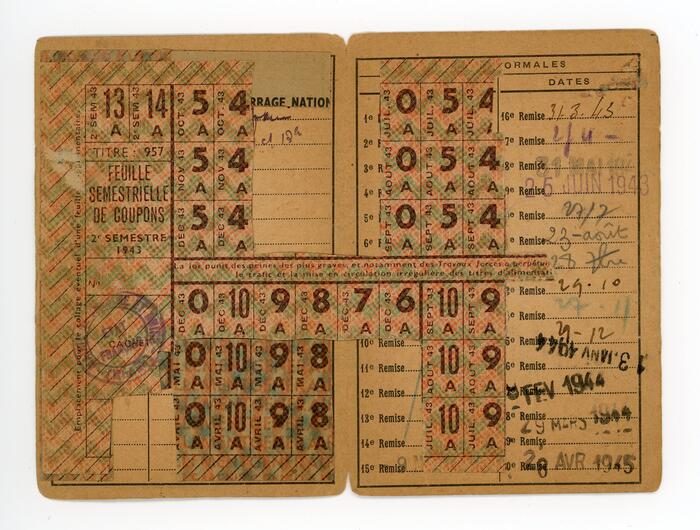 ORMALES
DATES
RRAGE_NATION
2e SEM 43 13 A
2e SEM 43 14 A
OCT. 43 5 A
OCT. 43 4 A
NOV 43 5 A
NOV 43 4 A
DEC 43 5 A
DEC 43 4 A
TITRE : 957
FEUILLE
SEMESTRIELLE
DE COUPONS
2e SEMESTRE
1943
No
Emplacement pour le collage éventuel d'une feuille
CACHET
JUIL 43 0 A
JUIL 43 5 A
JUIL 43 4
AOUT 43 0 A
AOUT 43 5 A
AOUT 43 4 A
0 A
5 A
4 A
La loi punit des peines des plus graves, et notamment des Travaux forcés à perpétui
le trafic et la mise en circulation irrégulière des titres d'alimentat
DEC 43 0 A
DEC 43 10 A
DEC 43 9 A
DEC 43 8 A
7 A
6 A
SEPT 43 10 A
SEPT 43 9 A
MAI 43 0 A
MAI 43 10 A
MAI 43 9 A
MAI 43 8 A
AOUT 43 10 A
AOUT 43 9 A
AVRIL 43 0 A
AVRIL 43 10 A
AVRIL 43 9 A
AVRIL 43 8 A
JUIL 43 10 A
JUIL 43 9 A
1e
2e
3e
4e
5e
6e
10e Remise
11e Remise
12e Remise
13e Remise
14e Remise
15e Remise
16e Remise 31.3.43
7e Remise
8e Remise
9e Remise 25 JUIN 1943
Remise 27/7
Remise 23-août
Remise 28
Remise 29.10
Remise
Remise 29-12
Remise 13 JANV 1944
Remise FEV 1944
Remise 29 MARS 1944
9e Remise
0e Remise 20 AVR 1945